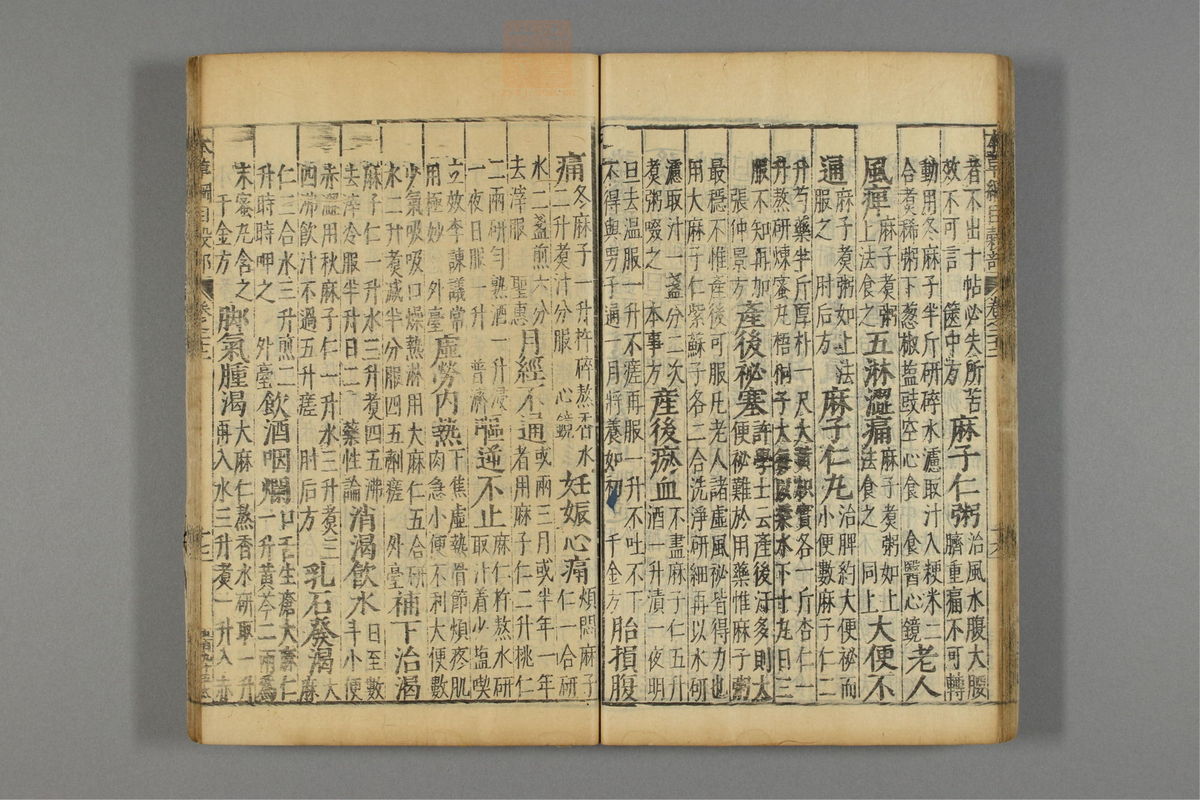 本草綱目穀部 卷二十二
者不出十帖必失所苦效不可言 篋中方 麻子仁粥 治風水腹大腰臍重痛不可轉
動用冬麻子半斤研碎水濾取汁入粳米二合煮稀粥下葱椒鹽豉空心食 食醫心鏡 老人
風痺 麻子煮粥上法食之 五淋澀痛 麻子煮粥如上法食之 同上 大便不
通 麻子煮粥如上法服之 肘后方 麻子仁丸 治脾約大便祕而小便數麻子仁二
升芍藥半斤厚朴一尺大黃枳實各一斤杏仁一升熬研煉蜜丸梧桐子大每以漿水下十丸日三
服不知再加 張仲景方 產後祕塞 許學士云產後汗多則大便祕難於用藥惟麻子粥
最穩不惟產後可服凡老人諸虛風祕皆得力也用大麻子仁紫蘇子各二合洗淨研細再以水研
濾取汁一盞分二次煮粥啜之 本事方 產後瘀血 不盡麻子仁五升酒一升漬一夜明
旦去溫服一升不瘥再服一升不吐不下不得與男子通一月將養如初 千金方 胎損腹
痛 冬麻子一升杵碎熬香水二升煮汁分服 心鏡 妊娠心痛 煩悶麻子仁一合研
水二盞煎六分去滓服 聖惠 月經不通 或兩三月或半年一年者用麻子仁二升桃仁
二兩研勻熟酒一升浸一夜日服一升 普濟 嘔逆不止 麻仁杵熬水研取汁着少鹽喫
立效李諫議常用極妙 外臺 虛勞內熱 下焦虛熱骨節煩疼肌肉急小便不利大便數
少氣吸吸口燥熱淋用大麻仁五合研水二升煮減半分服四五劑瘥 外臺 補下治渴
麻子仁一升水三升煮四五沸去滓冷服半升日二 藥性論 消渴飲水 日至數斗小便
赤澀用秋麻子仁一升水三升煮三四沸飲汁不過五升瘥 肘后方 乳石發渴 大麻
仁三合水三升煎二升時時呷之 外臺 飲酒咽爛 口舌生瘡大麻仁一升黃芩二兩爲
末蜜丸含之 千金方 腳氣腫渴 大麻仁熬香水研取一升再入水三升煮一升入赤
本草綱目穀部 卷二十二